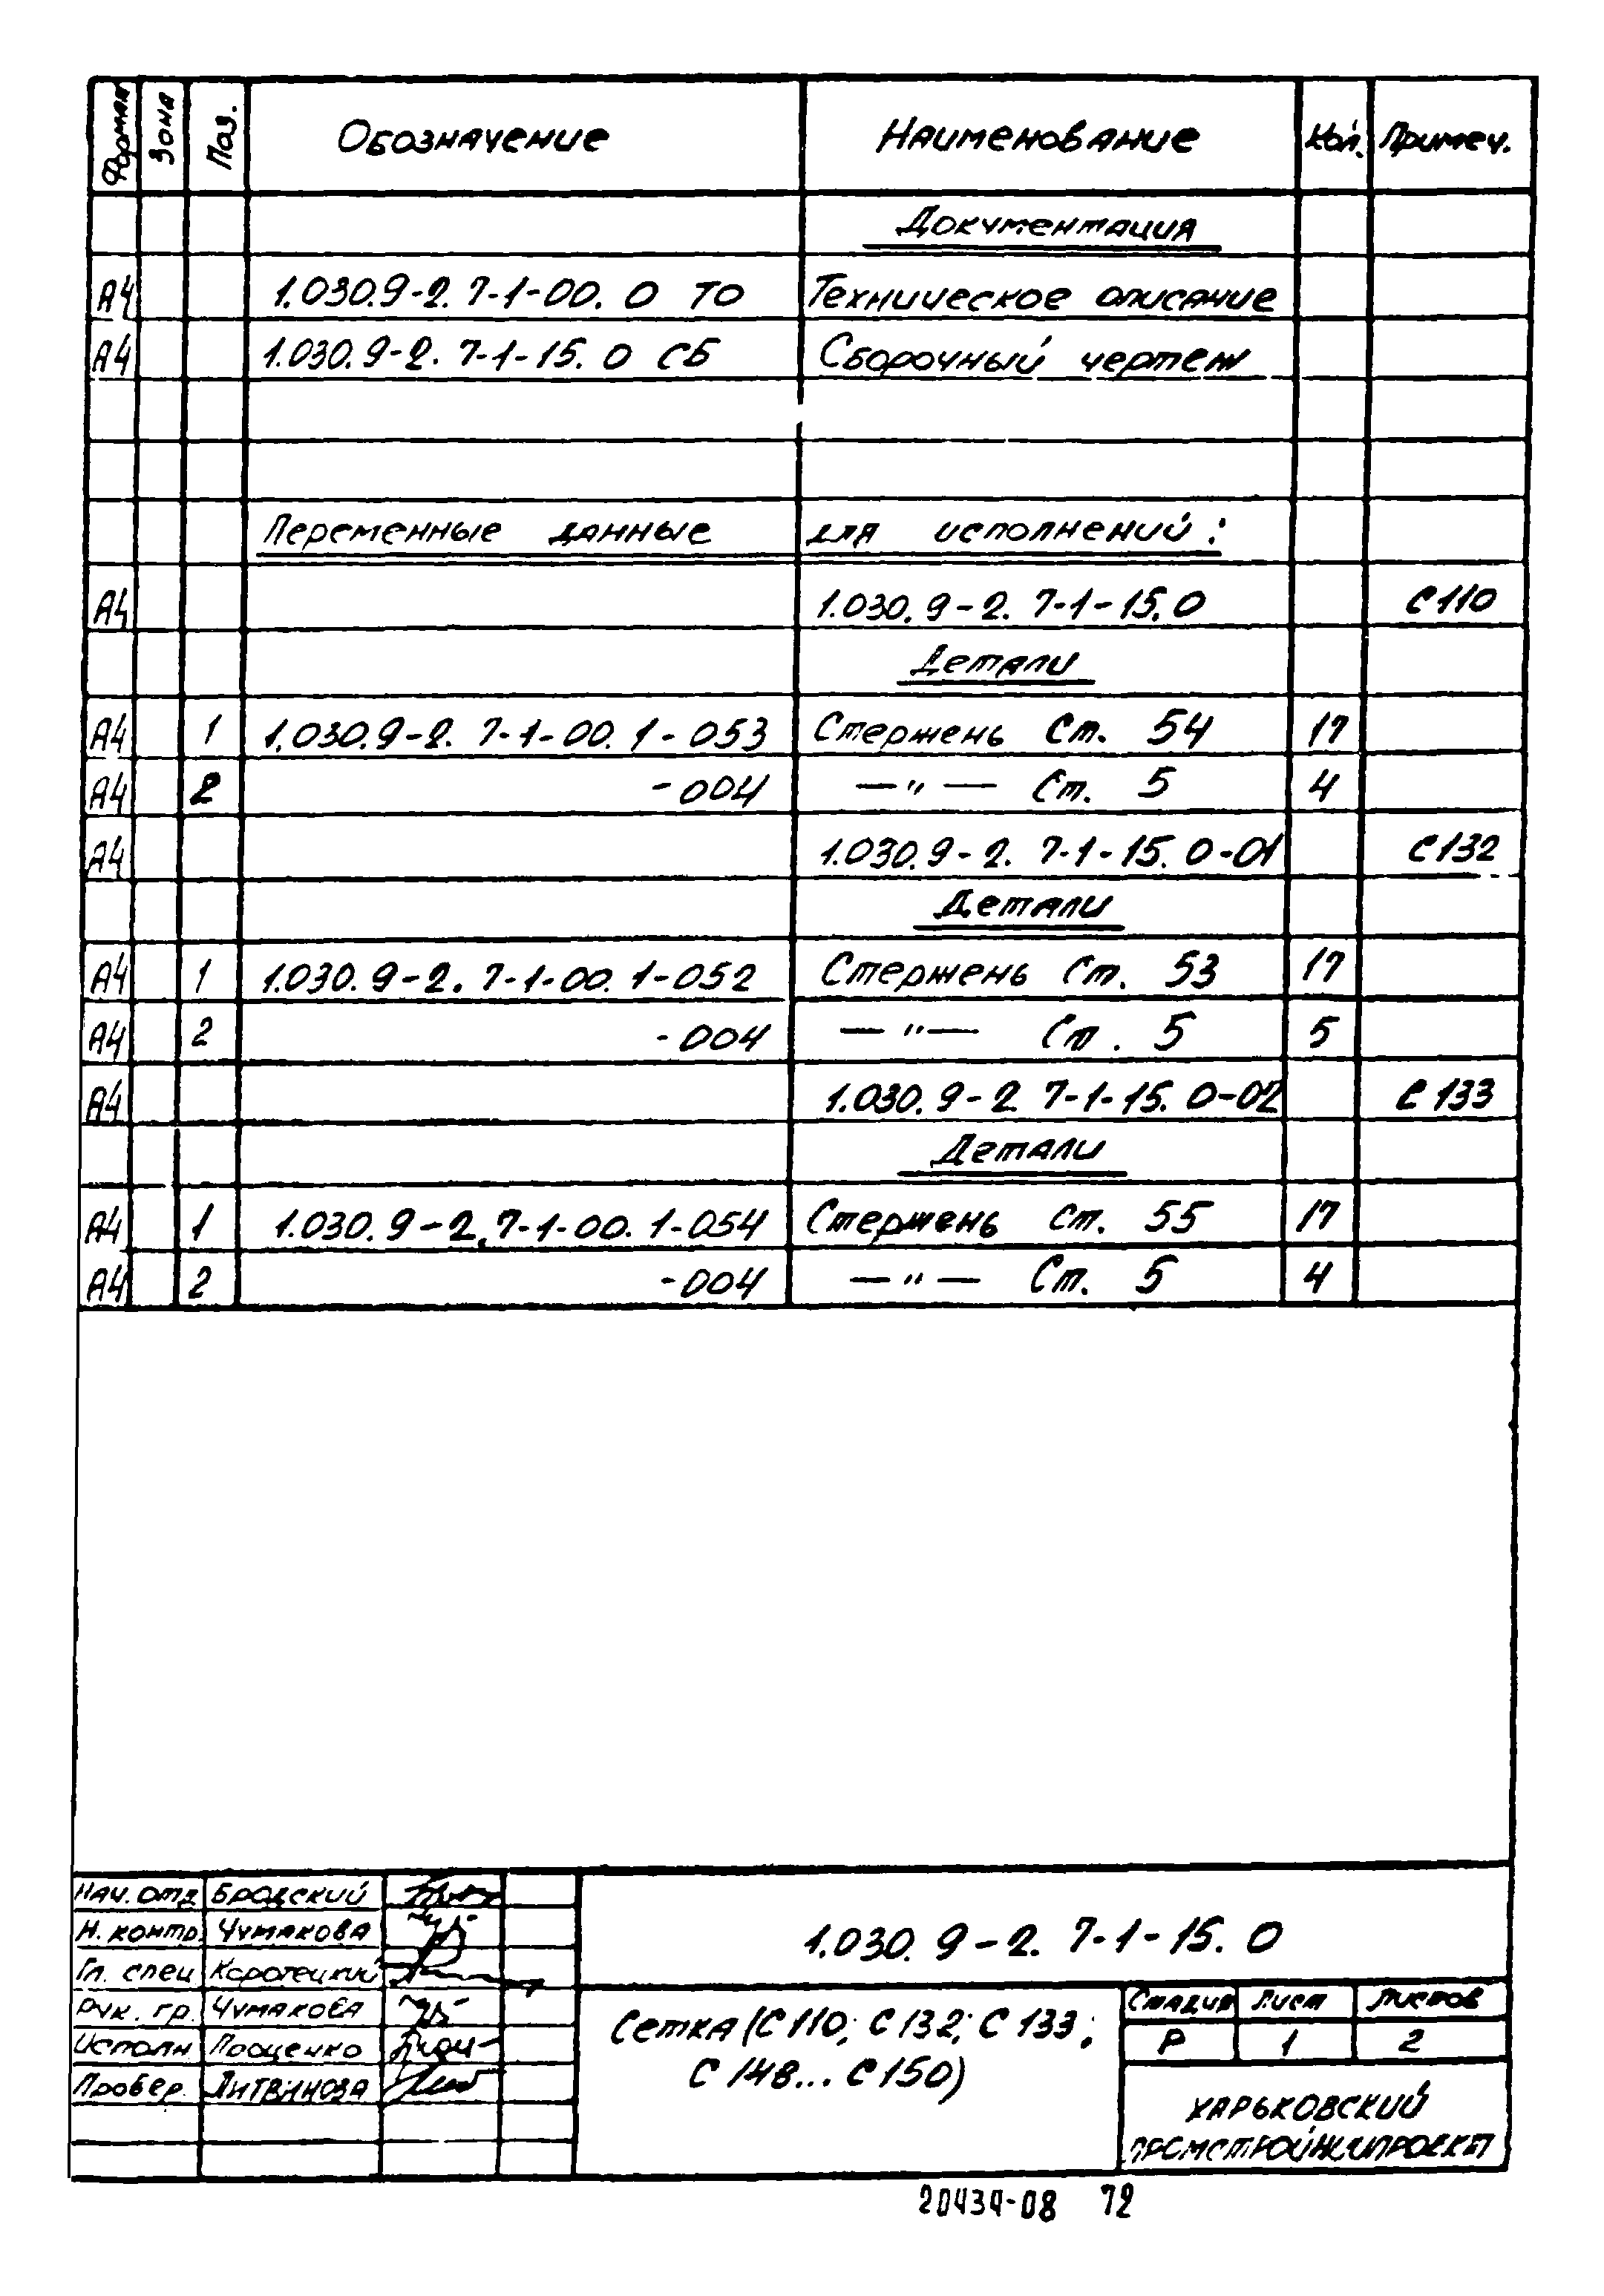 Формат Зона Поз. Обозначение Наименование Кол. Примеч.
Документация
А4 1.030.9-2. 7-1-00. 0 ТО Техническое описание
А4 1.030.9-2. 7-1-15. 0 СБ Сборочный чертеж
Переменные данные для исполнений:
А4 1.030.9-2. 7-1-15.0 С110
Детали
А4 1 1.030.9-2. 7-1-00. 1-053 Стержень Ст. 54 17
А4 2 -004 —"— Ст. 5 4
А4 1.030.9-2. 7-1-15. 0-01 С132
Детали
А4 1 1.030.9-2. 7-1-00. 1-052 Стержень Ст. 53 17
А4 2 -004 —"— Ст. 5 5
А4 1.030.9-2 7-1-15. 0-02 С133
Детали
А4 1 1.030.9-2. 7-1-00. 1-054 Стержень Ст. 55 17
А4 2 -004 —"— Ст. 5 4
Нач. отд Бродский
Н. контр. Чумакова
Гл. спец Коротецкий
Рук. гр. Чумакова
Исполн Пощенко
Провер. Литвинова
1.030.9-2. 7-1-15. 0
Сетка (С110; С132; С133;
С148... С150)
Стадия Лист Листов
Р 1 2
ХАРЬКОВСКИЙ
ПРОМСТРОЙНИИПРОЕКТ
20434-08 72